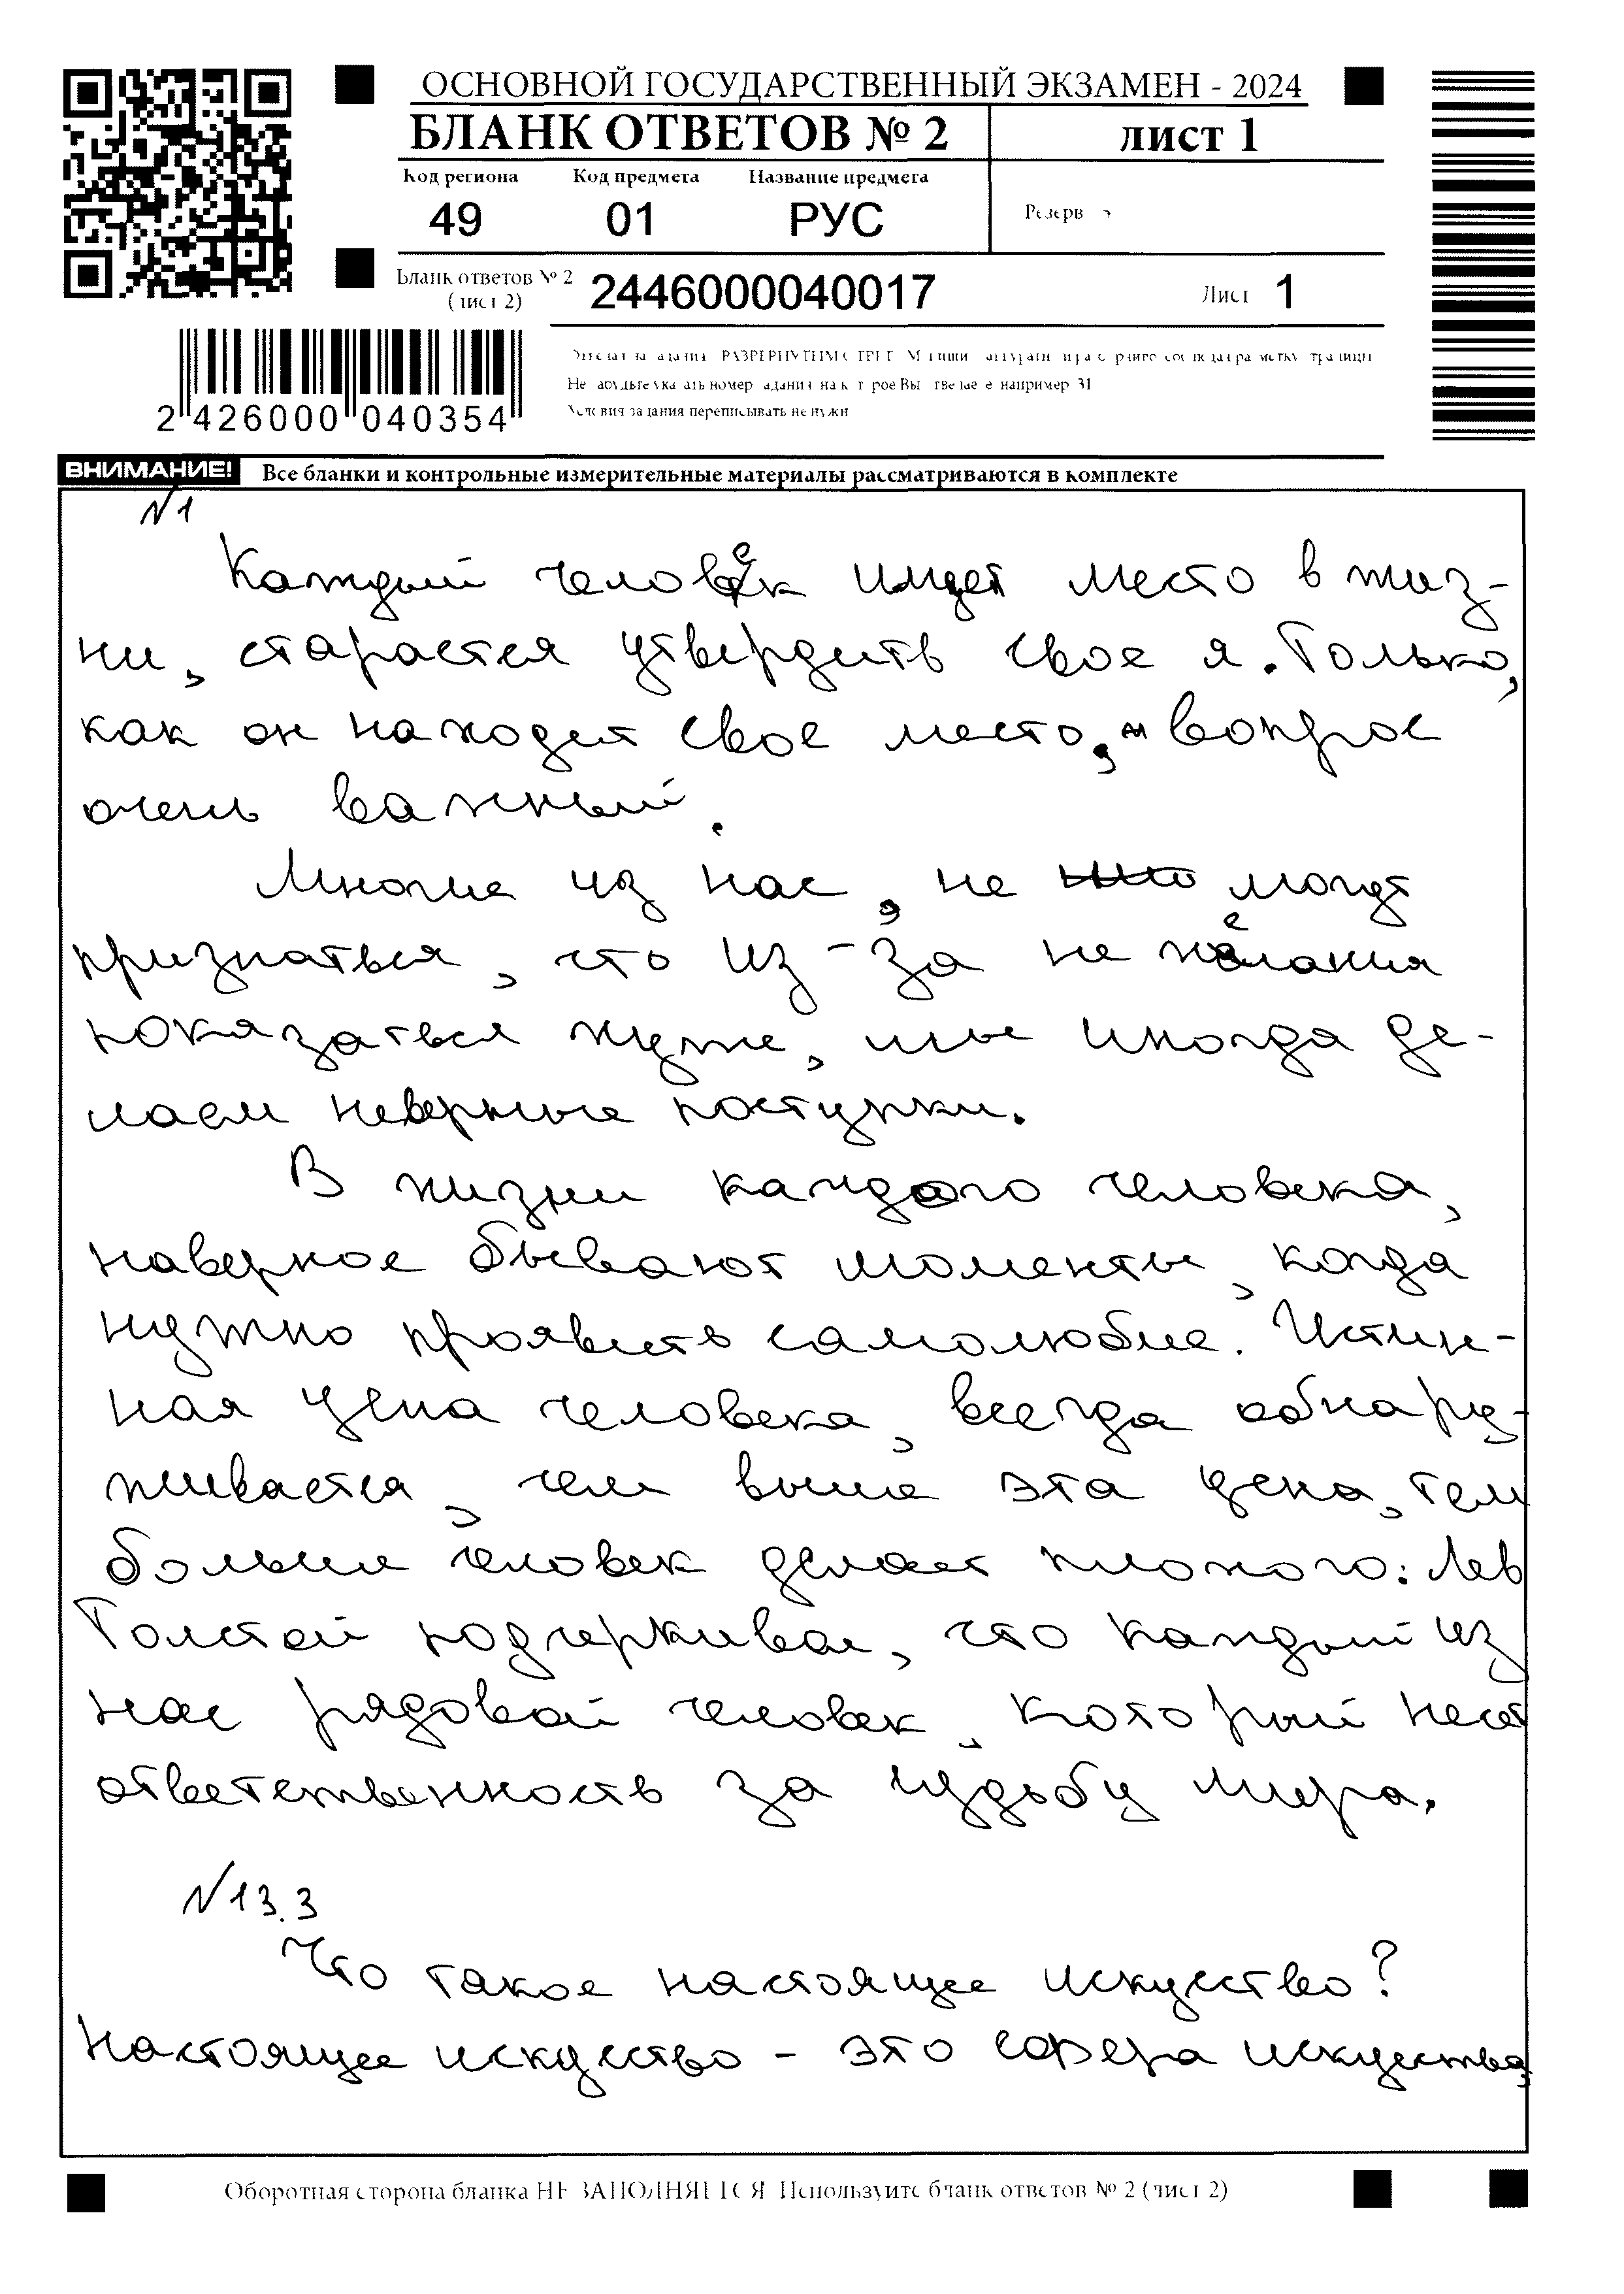 ОСНОВНОЙ ГОСУДАРСТВЕННЫЙ ЭКЗАМЕН - 2024
БЛАНК ОТВЕТОВ № 2
лист 1
Код региона
Код предмета
Название предмета
49
01
РУС
Резерв
Бланк ответов № 2
(лист 2)
2446000040017
Лист 1
2 426000 040354
Условия задания переписывать не нужн
ВНИМАНИЕ! Все бланки и контрольные измерительные материалы рассматриваются в комплекте
N1
Каждый человек ищет место в жиз-
ни, старается утвердить свое я. Только,
как он находит свое место, - вопрос
очень важный.
Многие из нас, не могут
признаться, что из-за не желания
показаться хуже, мы иногда де-
лаем неверные поступки.
В жизни каждого человека,
наверное бывают моменты, когда
нужно проявить самолюбие. Истин-
ная цена человека, всегда обнару-
живается, чем выше эта цена, тем
больше человек делает плохого: Лев
Толстой подчеркивае, что каждый из
нас рядовой человек, который несет
ответственность за судьбу мира.
N13.3
Что такое настоящее искуство?
Настоящее искуство - это сфера искуства,
Оборотная сторона бланка НЕ ЗАПОЛНЯЕТСЯ Используйте бланк ответов № 2 (лист 2)